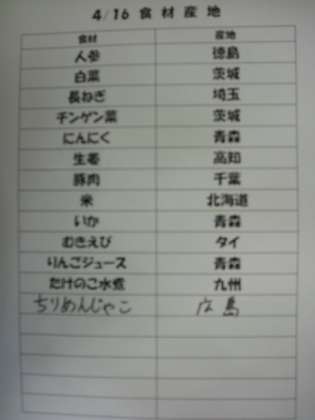 4/16 食材産地
食材 産地
人参 徳島
白菜 茨城
長ねぎ 埼玉
チンゲン菜 茨城
にんにく 青森
生姜 高知
豚肉 千葉
米 北海道
いか 青森
むきえび タイ
りんごジュース 青森
たけのこ水煮 九州
ちりめんじゃこ 広島